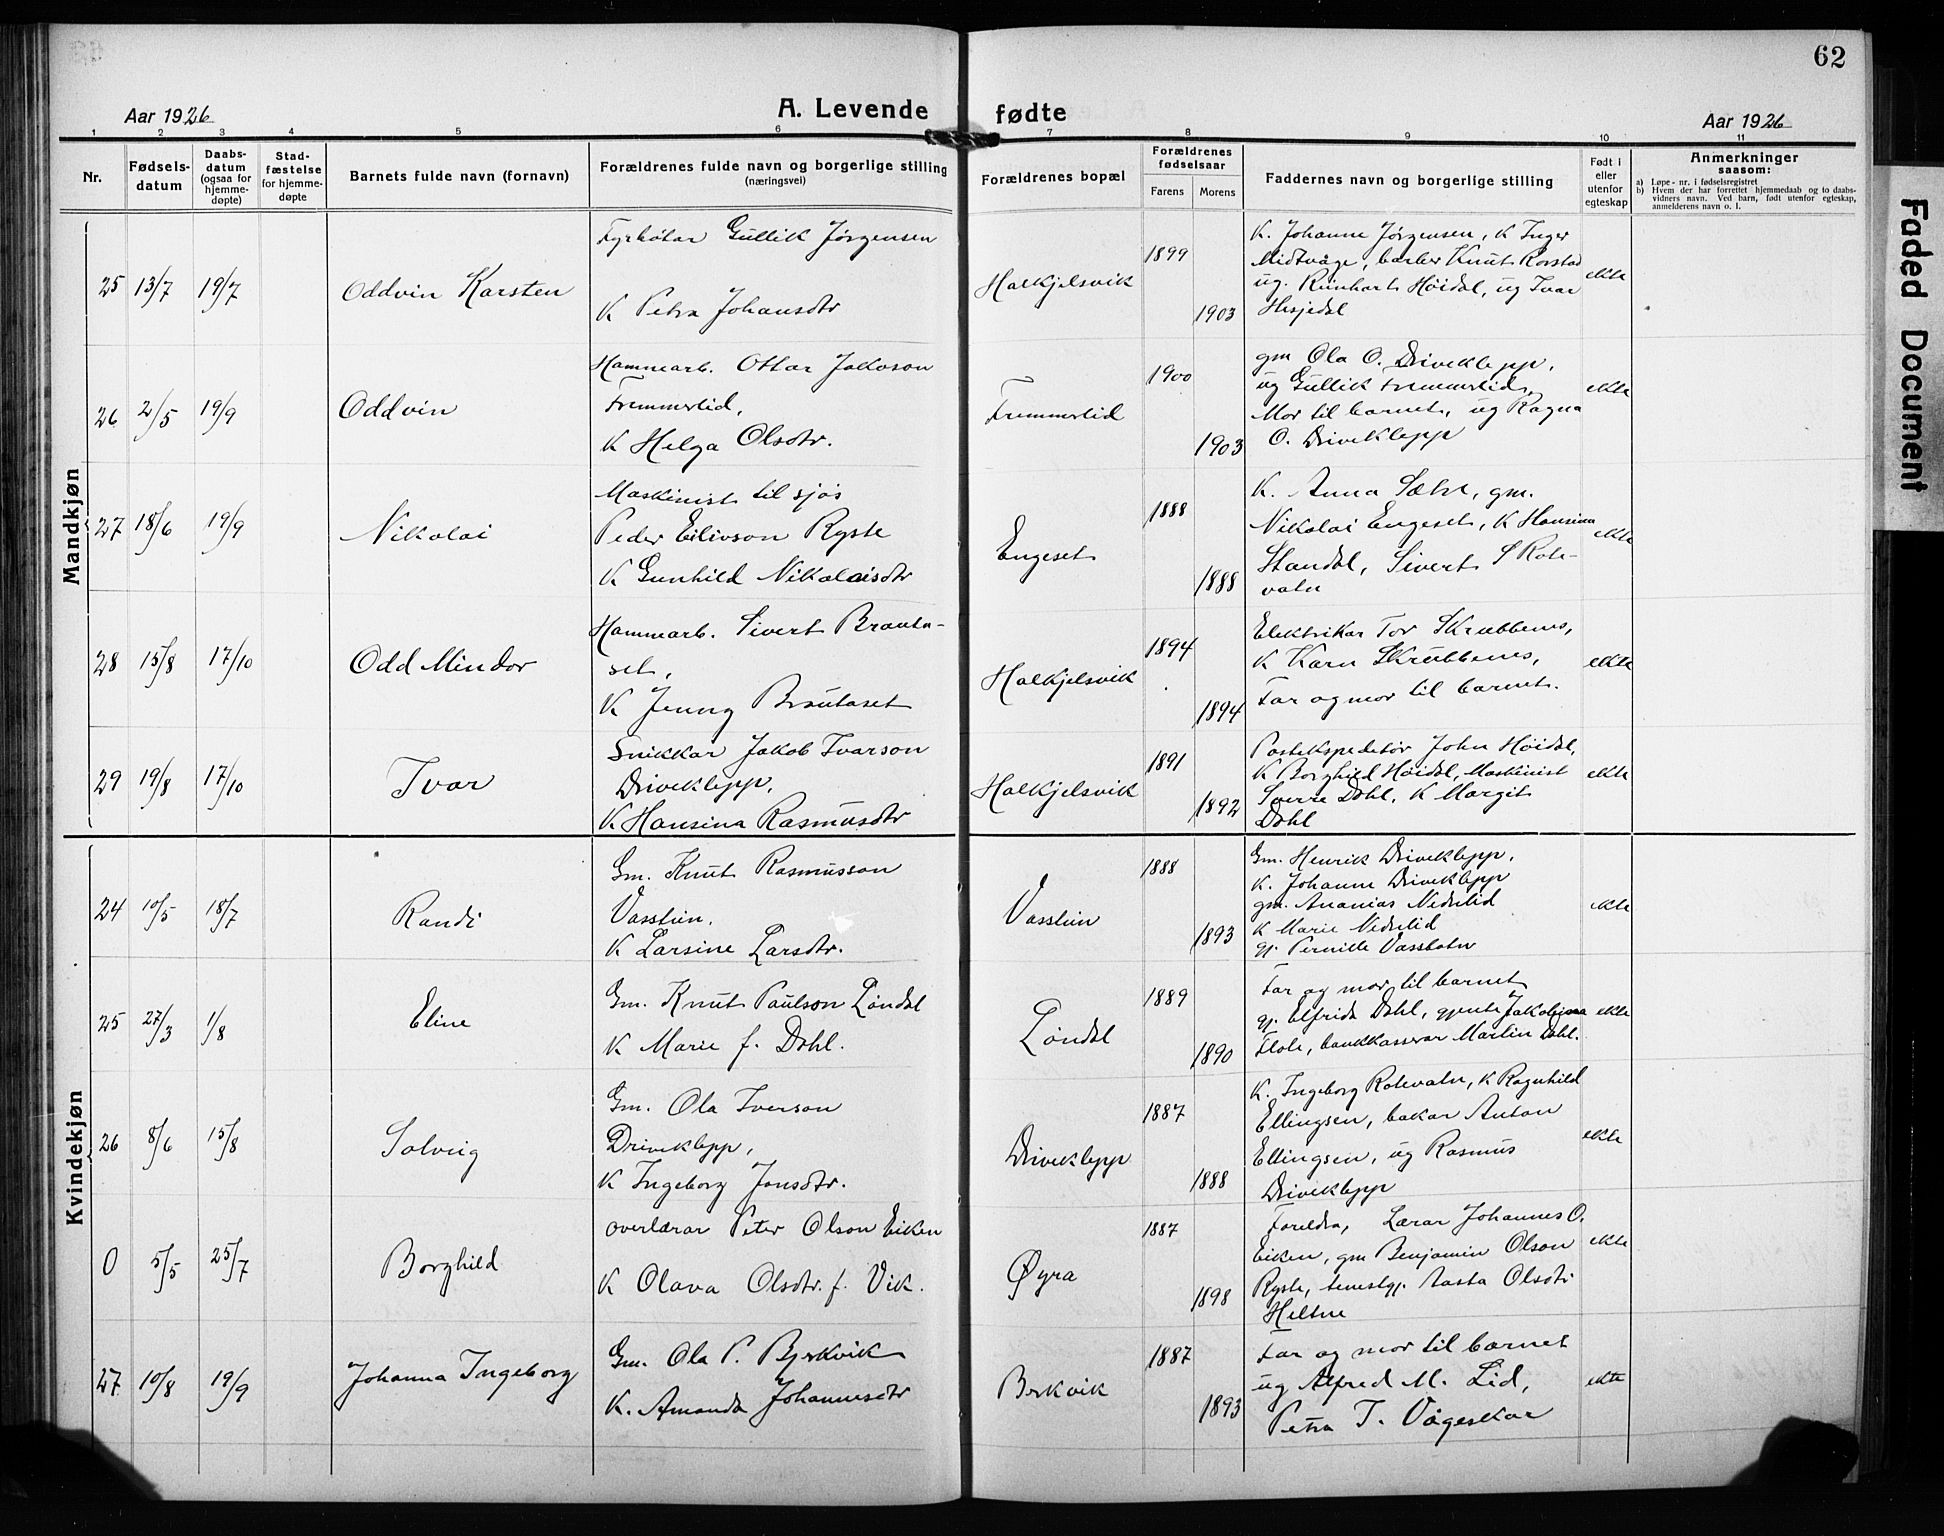 62
Aar 1926
A. Levende fødte
Aar 1926
1 2 3 4 5 6 7 8 9 10 11
Nr.
Fødsels-
datum
Daabs-
datum
(ogsaa for
hjemme-
døpte)
Stad-
fæstelse
for hjemme-
døpte
Barnets fulde navn (fornavn)
Forældrenes fulde navn og borgerlige stilling
(næringsvei)
Forældrenes bopæl
Forældrenes
fødselsaar
Farens Morens
Faddernes navn og borgerlige stilling
Født i
eller
utenfor
egteskap
Anmerkninger
saasom:
a) Løpe-nr. i fødselsregistret
b) Hvem der har forrettet hjemmedaab og to daabs-
vidners navn. Ved barn, født utenfor egteskap,
anmelderens navn o. l.
Mandkjøn
25 13/7 19/7 Oddvin Karsten
Fyrbøtar Gullik Jørgensen
K Petra Johansdtr
Halkjelsvik
1899
1903
K. Johanne Jørgensen, K Inger
Midtvåge, barber Knut Rorstad
ug. Reinhart Høidal, ug Ivar
Hesjedal
ekte
26 2/5 19/9 Oddvin
Hammarb. Ottar Jakobson
Fremmerlid,
K Helga Olsdtr.
Fremmerlid
1900
1903
gm Ola O. Driveklepp,
ug Gullik Fremmerlid,
Mor til barnet, ug Ragna
O. Driveklepp
ekte
27 18/6 19/9 Nikolai
Maskinist til sjøs
Peder Eilivson Ryste
K Gunhild Nikolaisdtr
Engeset
1888
1888
K. Anna Sætre, gm.
Nikolai Engeset, K Hansina
Standal, Sivert S Rote-
vatn
ekte
28 15/8 17/10 Odd Mindor
Hammarb. Sivert Brauta-
set,
K Jenny Brautaset
Halkjelsvik
1894
1894
Elektrikar Tor Skrubbenes,
K Karn Skrubbenes,
Far og mor til barnet.
ekte
29 19/8 17/10 Ivar
Snikkar Jakob Ivarson
Driveklepp,
K Hansina Rasmusdtr
Halkjelsvik
1891
1892
Postekspeditør John Høidal,
K Borghild Høidal, Maskinist
Sverre Dahl, K Margit
Dahl
ekte
Kvindekjøn
24 10/5 18/7 Randi
Gm. Knut Rasmusson
Vasstun,
K Larsine Larsdtr.
Vasstun
1888
1893
Gm. Henrik Driveklepp,
K. Johanne Driveklepp
gm. Ananias Nedrelid
K Marie Nedrelid
gj. Pernille Vassbotn
ekte
25 27/3 1/8 Eline
Gm. Knut Paulson Løndal
K Marie f. Dahl.
Løndal
1889
1890
Far og mor til barnet
gj. Elfrida Dahl, gjente Jakobina
Flote, bankkasserar Martin Dahl.
ekte
26 8/6 15/8 Solveig
Gm. Ola Iverson
Driveklepp,
K Ingeborg Jonsdtr.
Driveklepp
1887
1888
K. Ingeborg Rotevatn, K Ragnhild
Ellingsen, bakar Anton
Ellingsen, ug Rasmus
Driveklepp
ekte
0 5/5 25/7 Borghild
overlærar Peter Olson Eiken
K Olava Olsdtr. f. Vik.
Øyra
1887
1898
Foreldra, Lærar Johannes O.
Eiken, gm Benjamin Olson
Ryste, tenestgj. Aasta Olsdtr
Heltne
ekte
27 10/8 19/9 Johanna Ingeborg
Gm. Ola P. Bjrkvik
K. Amanda Johannesdtr
Brkvik
1887
1893
Far og mor til barnet
ug Alfred M. Lid,
Petra T. Vågeskar
ekte
Faded Document